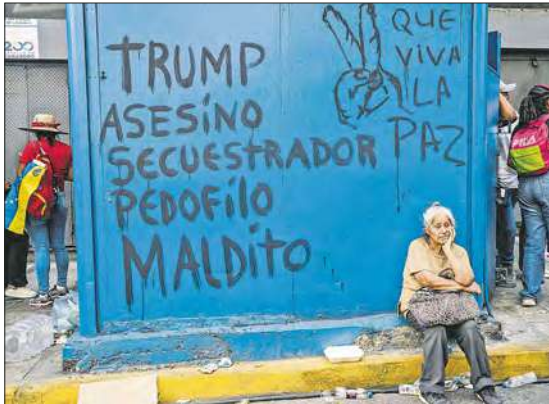 TRUMP
ASESINO
SECUESTRADOR
PEDOFILO
MALDITO
QUE
VIVA
LA
PAZ
FILA